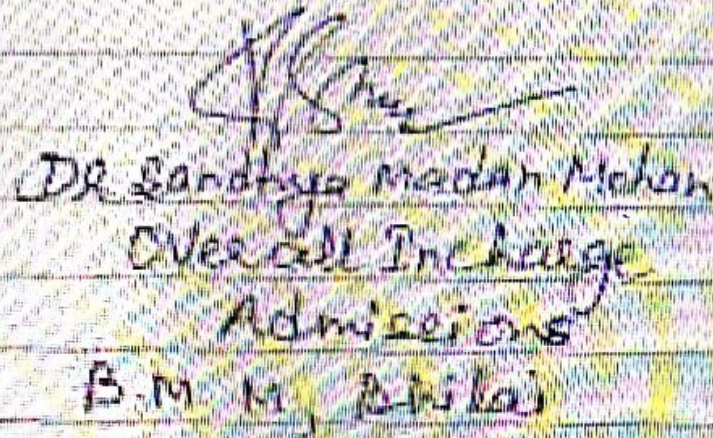 DR Sandhya Madan Mohan
Overall Incharge
Admissions
B.M M, Bhilai